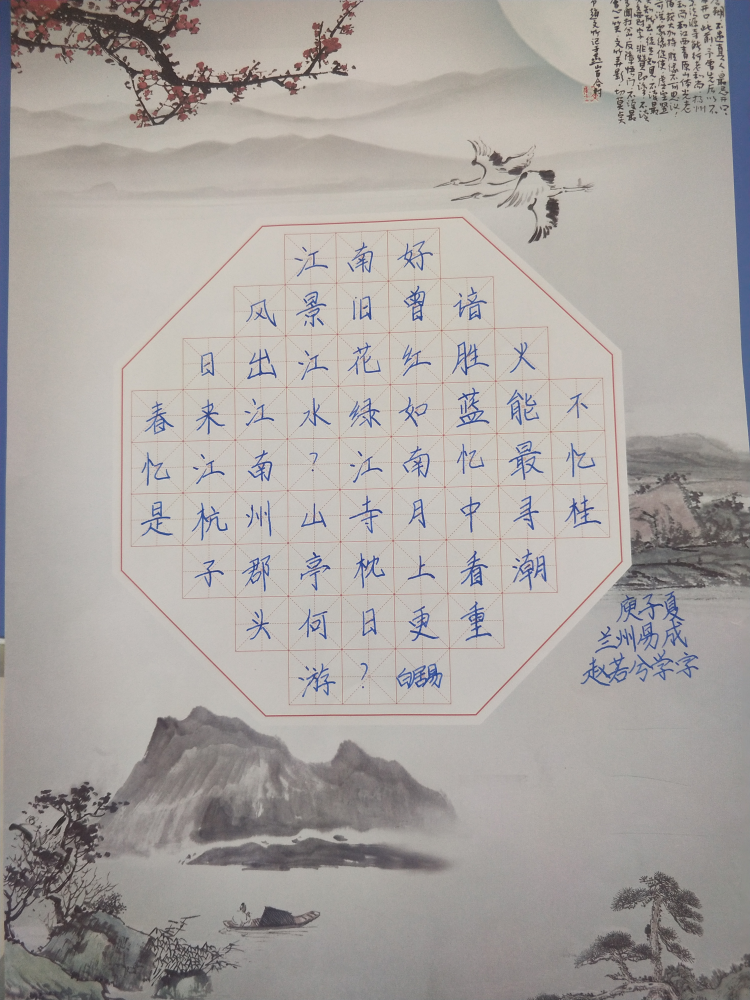 江南好
风景旧曾谙
日出江花红胜火
春来江水绿如蓝能不
忆江南？江南忆最忆
是杭州山寺月中寻桂
子郡亭枕上看潮
头何日更重
游？白居易
庚子夏
兰州易成
赵若兮学字